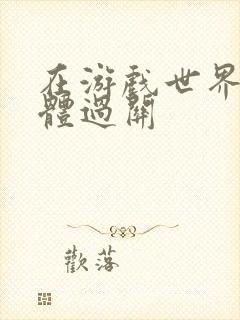 在游戏世界
體過關
歡落